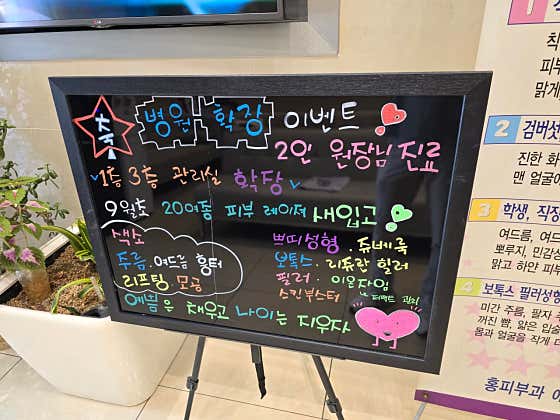 축
병원 확장 이벤트
2인 원장님 진료
1층 3층 관리실 확장
9월초 20여종 피부 레이저 새입고
색소
주름. 여드름 흉터
리프팅 모공
쁘띠성형. 쥬베룩
보톡스. 리쥬란 힐러
필러. 이온자임
스킨부스터
예쁨은 채우고 나이는 지우자
1
피부
맑게
2 검버섯
진한
맨 얼굴에
3 학생, 직장
여드름, 여드
뾰루지, 민감
맑고 하얀 피
4 보톡스 필러성형
미간 주름, 팔자
꺼진 뺨, 얇은 입술
몸과 얼굴을 작게
홍피부과